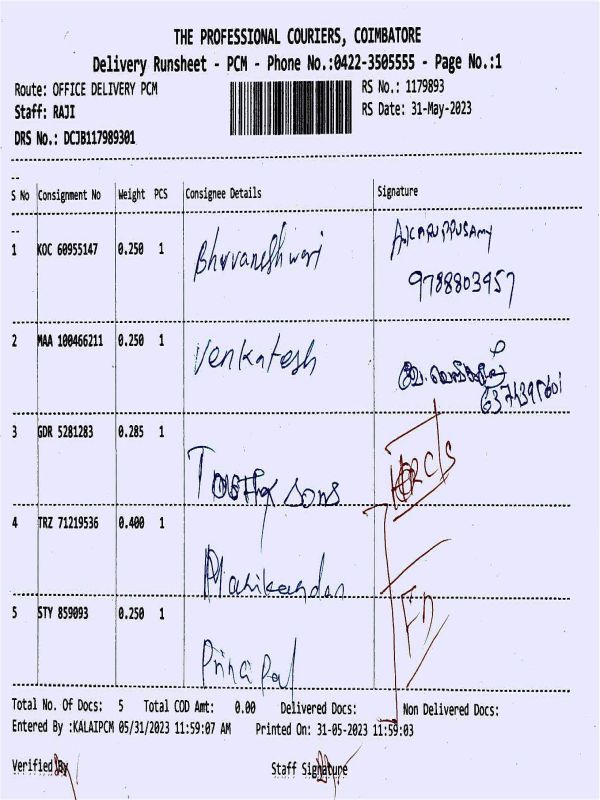 THE PROFESSIONAL COURIERS, COIMBATORE
Delivery Runsheet - PCM - Phone No.:0422-3505555 - Page No.:1
Route: OFFICE DELIVERY PCM RS No.: 1179893
Staff: RAJI RS Date: 31-May-2023
DRS No.: DCJB117989301
--
S No Consignment No Weight PCS Consignee Details Signature
--
1 KOC 60955147 0.250 1 Bhuvaneshwari
9788803957
2 MAA 100466211 0.250 1 Venkatesh
3 GDR 5281283 0.285 1 sons
4 TRZ 71219536 0.400 1 Manikandan
5 STY 859093 0.250 1 Principal
Total No. Of Docs: 5 Total COD Amt: 0.00 Delivered Docs: Non Delivered Docs:
Entered By :KALAIPCM 05/31/2023 11:59:07 AM Printed On: 31-05-2023 11:59:03
Verified By Staff Signature